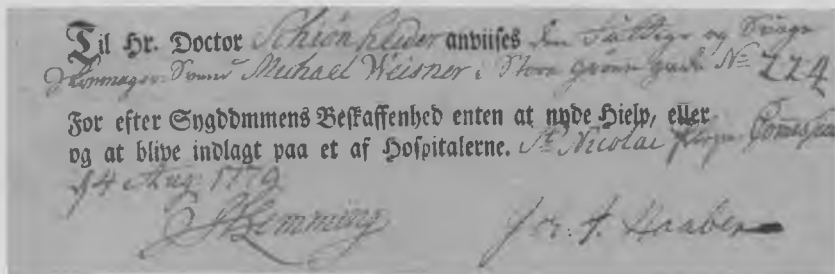 Til Hr. Doctor Schiönheider anviises den Fattige og Svage
Skomager Svend Michael Weisner i Store grönne gade No 224
For efter Sygdommens Beskaffenhed enten at nyde Hielp, eller
og at blive indlagt paa et af Hospitalerne. St. Nicolai
14 Aug. 1779
Hemming J. Haaber